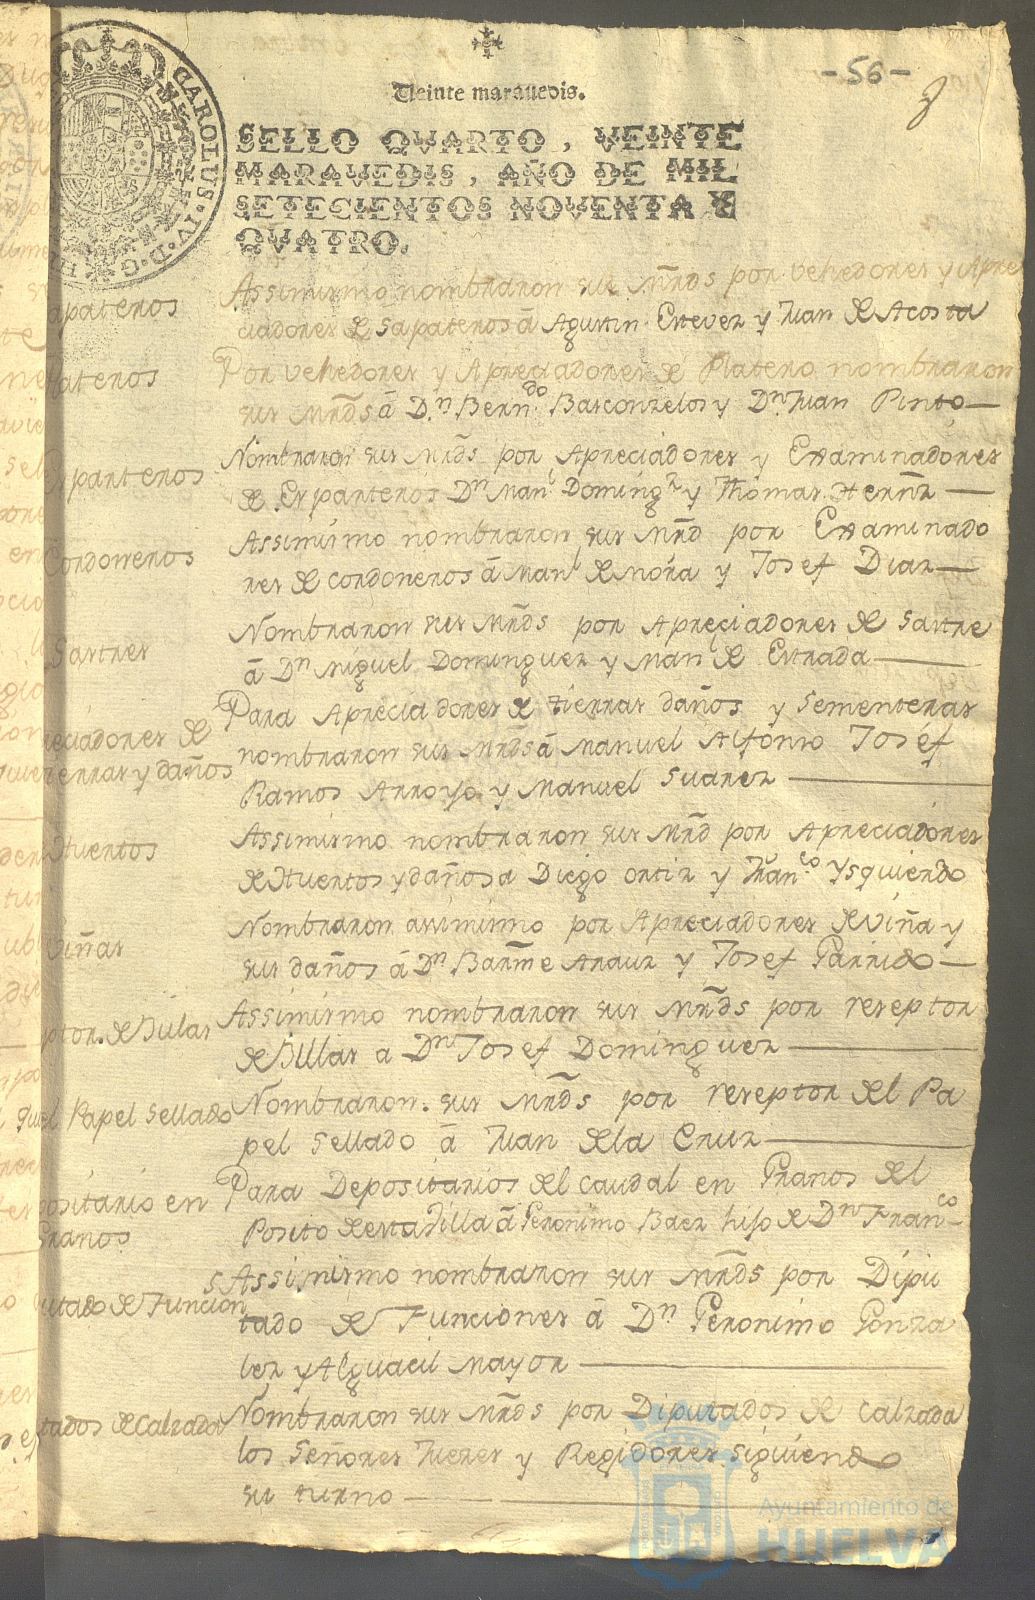 -56-
Veinte maravedis.
SELLO QVARTO, VEINTE
MARAVEDIS, AÑO DE MIL
SETECIENTOS NOVENTA Y
QVATRO.
CAROLUS·IV·D·G·
apateros
Assimismo nombraron sus Mrds por vehedores y Apre
ciadores de sapateros á Agustin Estevez y Juan de Acosta
lateros
Por vehedores y Apreciadores de Platero nombraron
sus Mrds á Dn Berndo Basconzelos y Dn Juan Pinto
sparteros
Nombraron sus Mrds por Apreciadores y Examinadores
de Esparteros Dn Manl Domingz y Thomas Hernz
Cordoneros
Assimismo nombraron sus Mrd por Examinado
res de cordoneros á Manl de Mora y Josef Diaz
Sastres
Nombraron sus Mrds por Apreciadores de Sastre
á Dn Miguel Dominguez y Manl de Estrada
reciadores de
tierras y daños
Para Apreciadores de tierras daños y sementeras
nombraron sus Mrds á Manuel Alfonso Josef
Ramos Arroyo y Manuel Suarez
Huertos
Assimismo nombraron sus Mrd por Apreciadores
de Huertos y daños a Diego ortiz y Franco Ysquierdo
Viñas
Nombraron assimismo por Apreciadores de viña y
sus daños á Dn Barme Arauz y Josef Garrido
ptor de Bulas
Assimismo nombraron sus Mrds por reseptor
de Bulas a Dn Josef Dominguez
el Papel Sellado
Nombraron sus Mrds por reseptor del Pa
pel Sellado á Juan de la Cruz
positario en
Granos
Para Depositarios del caudal en Granos del
Posito de esta Villa á Geronimo Baez hijo de Dn Franco
utado de Funcion
Assimismo nombraron sus Mrds por Dipu
tado de Funciones á Dn Geronimo Gonza
lez y Alguacil Mayor
tados de calzada
Nombraron sus Mrds por Diputados de calzada
los Señores Juezes y Regidores siguiendo
su turno
Ayuntamiento de
HUELVA